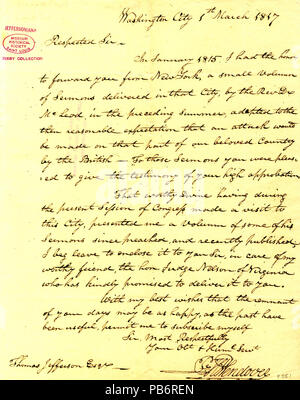 Washington City 1st March 1817
JEFFERSON
MISSOURI
HISTORICAL
SOCIETY
SAINT LOUIS
BIXBY COLLECTION
Respected Sir
In January 1815 I had the honor
to forward you from New York, a small Volumn
of Sermons delivered in that City, by the Revd Dr
McLeod, in the preceding Summer, adapted to the
then reasonable expectation that an attack would
be made on that part of our beloved Country
by the British — To those Sermons you were pleas-
ed to give the testimony of your high approbation
That worthy Divine having during
the present Session of Congress made a visit to
this City, presented me a Volumn of some of his
Sermons since preached, and recently published
I beg leave to enclose it to you Sir, in care of my
worthy friend, the Hon. Judge Nelson of Virginia
who has kindly promised to deliver it to you.
With my best wishes that the remnant
of your days may be as happy, as the past have
been useful, permit me to subscribe myself
Sir Most Respectfully
Your Obt & Hum Servt
P. H. Wendover
Thomas Jefferson Esqr
alamy
Image ID: PB6REN
www.alamy.com